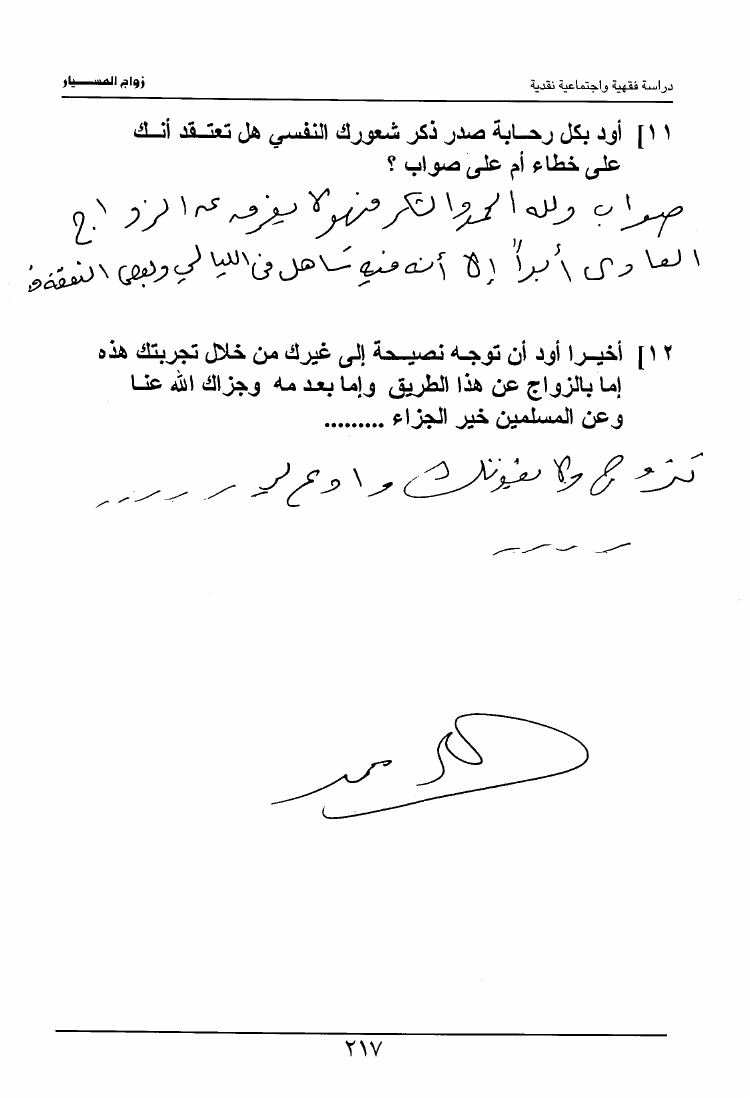 زواج المسيار
دراسة فقهية واجتماعية نقدية
١١] أود بكل رحابة صدر ذكر شعورك النفسي هل تعتقد أنك
على خطاء أم على صواب ؟
صواب ولله الحمد والشكر فهو لا يفرق عن الزواج
العادي أبداً إلا أنه فيه تساهل في الليالي وبعض النفقة
١٢] أخيرا أود أن توجه نصيحة إلى غيرك من خلال تجربتك هذه
إما بالزواج عن هذا الطريق وإما بعدمه وجزاك الله عنا
وعن المسلمين خير الجزاء .........
تزوج ولا يفوتك وادع لي
٢١٧